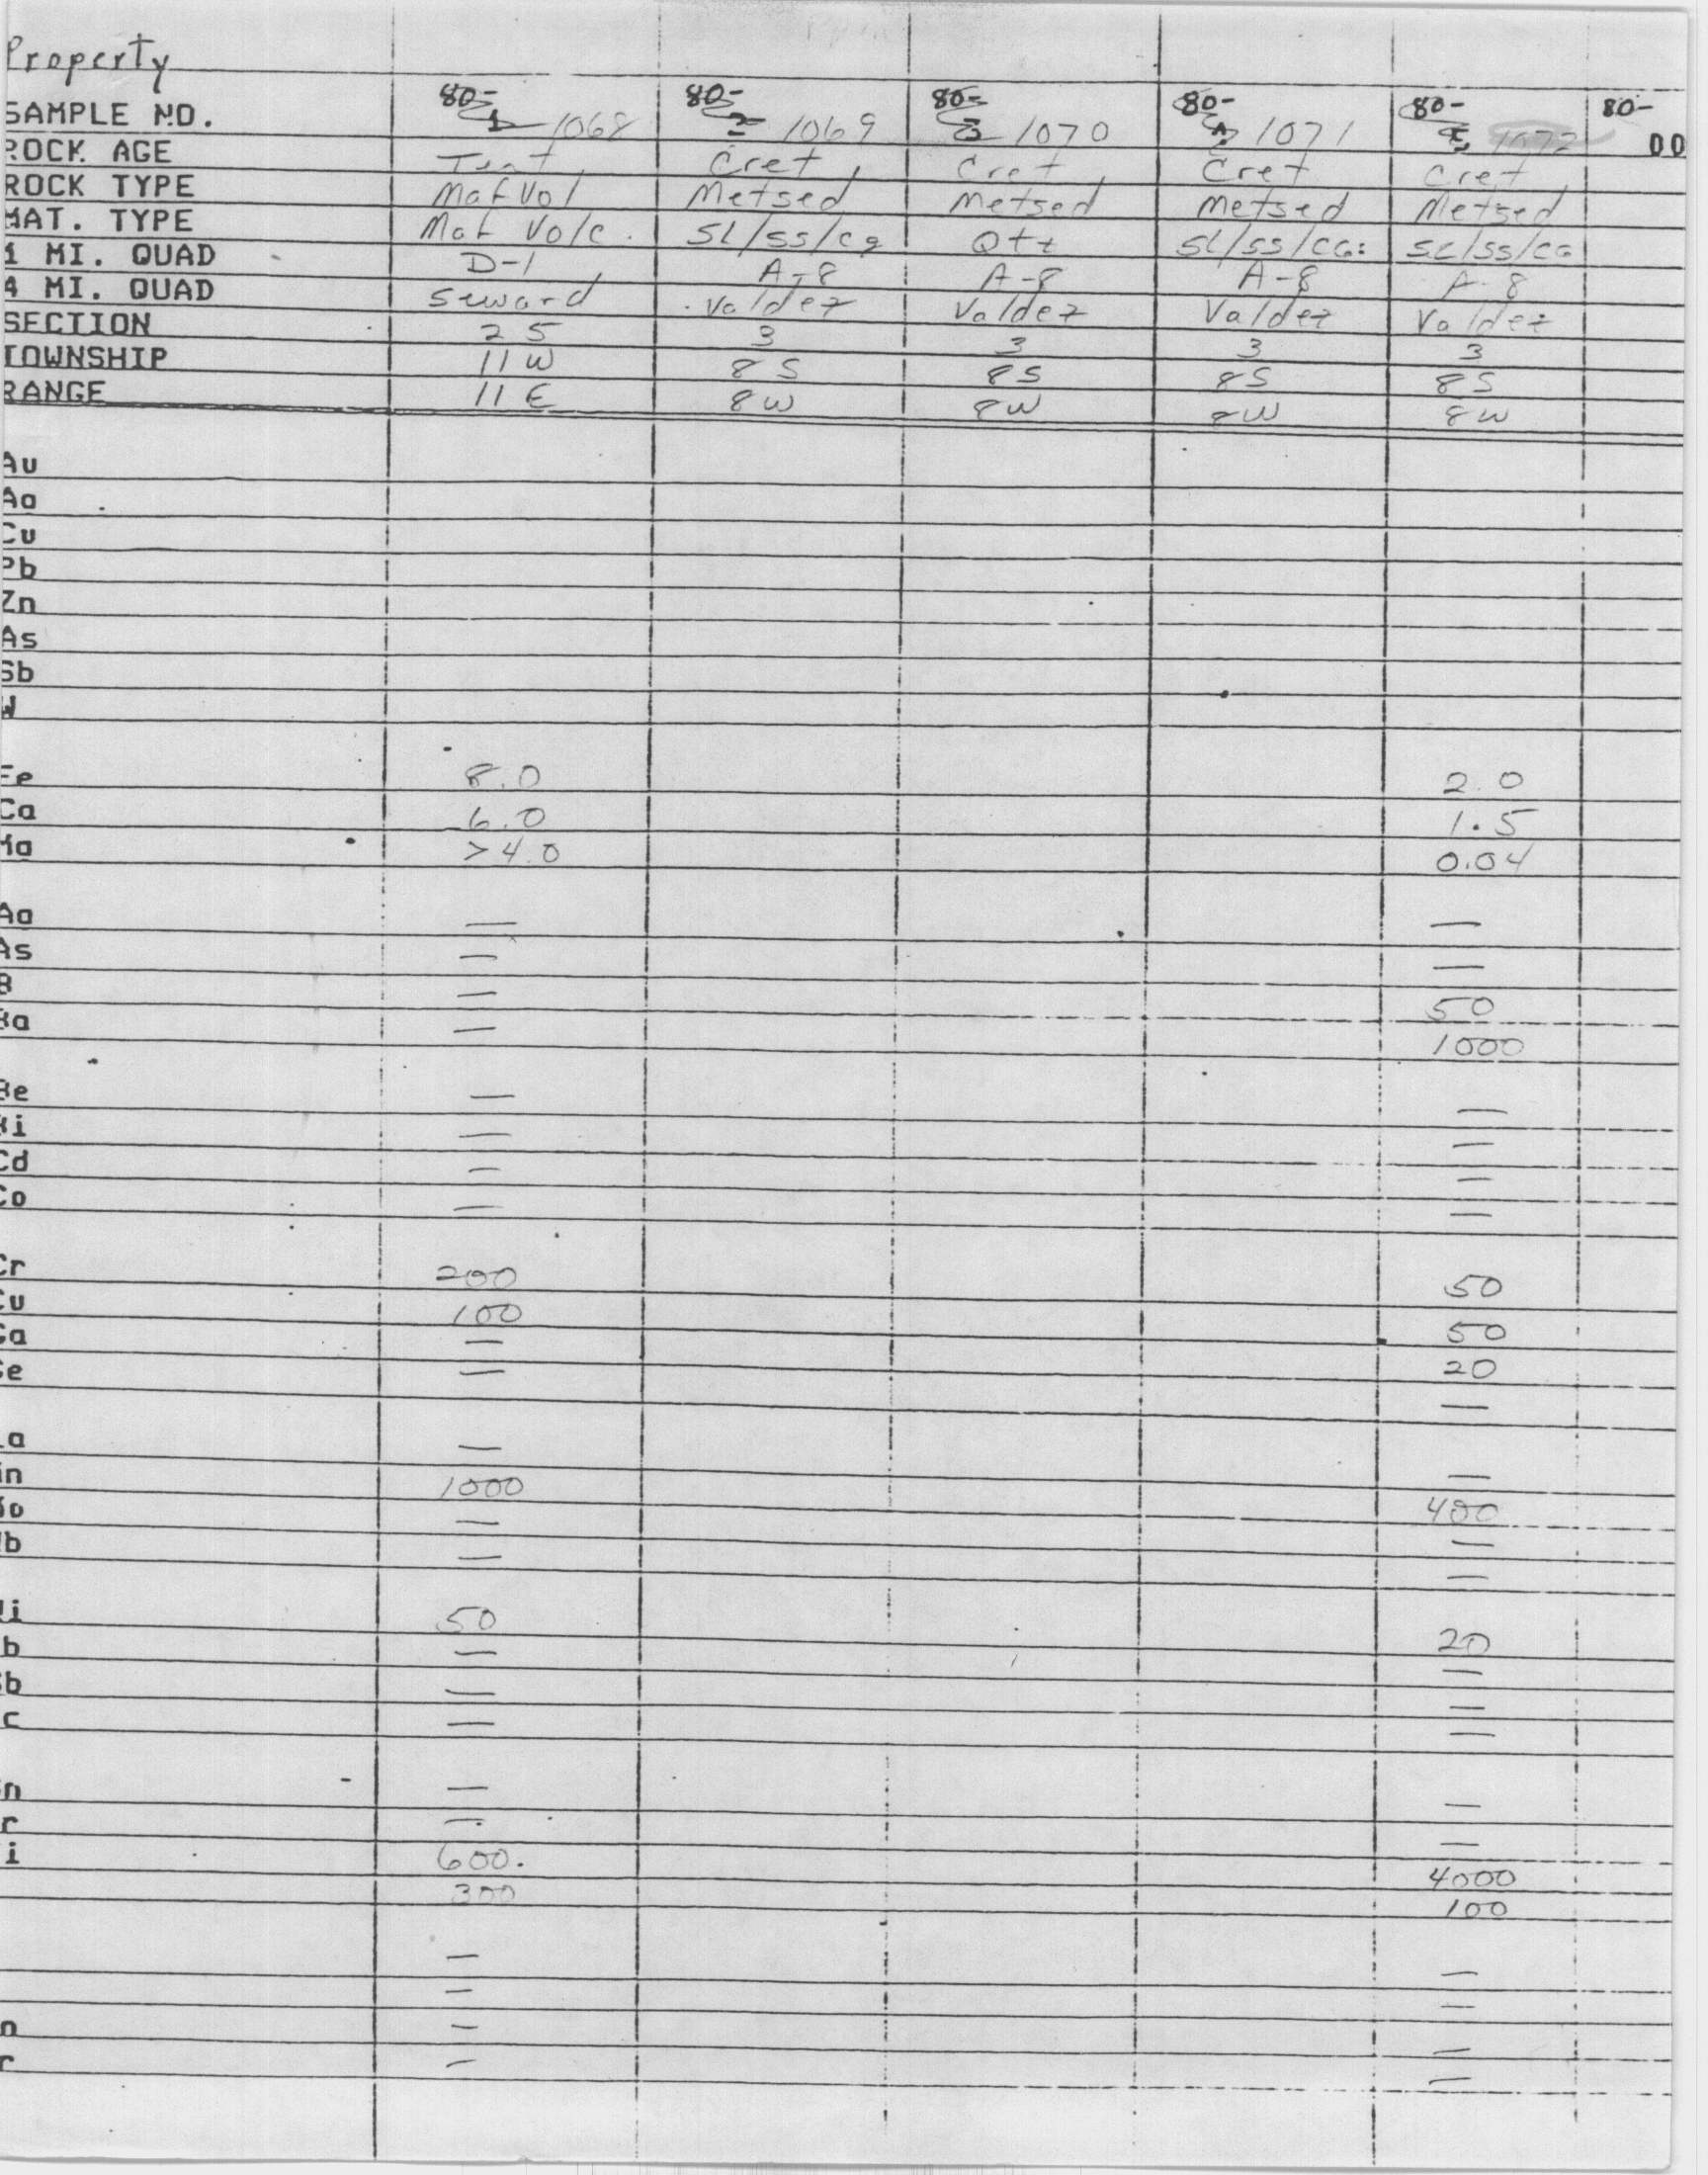 Property
SAMPLE NO. 80- 1068 80- 1069 80- 1070 80- 1071 80- 1072 80- 00
ROCK AGE Tert Cret Cret Cret Cret
ROCK TYPE Maf Vol Metsed Metsed Metsed Metsed
MAT. TYPE Maf Volc. SL/SS/Cg Qtz SL/SS/CG: SL/SS/CG
1 MI. QUAD D-1 A-8 A-8 A-8 A-8
4 MI. QUAD Seward Valdez Valdez Valdez Valdez
SECTION 25 3 3 3 3
TOWNSHIP 11W 8S 8S 8S 8S
RANGE 11E 8W 8W 8W 8W
Au
Ag
Cu
Pb
Zn
As
Sb
W
Fe 8.0 2.0
Ca 6.0 1.5
Mg >4.0 0.04
Ag — —
As — —
B — 50
Ba — 1000
Be — —
Bi — —
Cd — —
Co — —
Cr 200 50
Cu 100 50
Ga — 20
Ge — —
La — —
Mn 1000 400
Mo — —
Nb — —
Ni 50 20
b — —
Sb — —
c — —
n — —
r — —
i 600. 4000
300 100
— —
— —
n — —
r — —